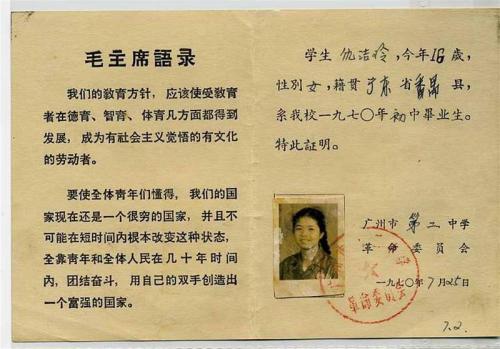 毛主席語录
我们的敎育方针，应该使受敎育
者在德育、智育、体育几方面都得到
发展，成为有社会主义觉悟的有文化
的劳动者。
要使全体青年们懂得，我们的国
家现在还是一个很穷的国家，并且不
可能在短时间内根本改变这种状态，
全靠青年和全体人民在几十年时间
内，团结奋斗，用自己的双手创造出
一个富强的国家。
学生仇洁玲，今年16歲，
性别女，籍贯广东省番禺县，
系我校一九七〇年初中畢业生。
特此証明。
广州市第二中学
革命委员会
一九七〇年7月25日
革命委员会
7.2.